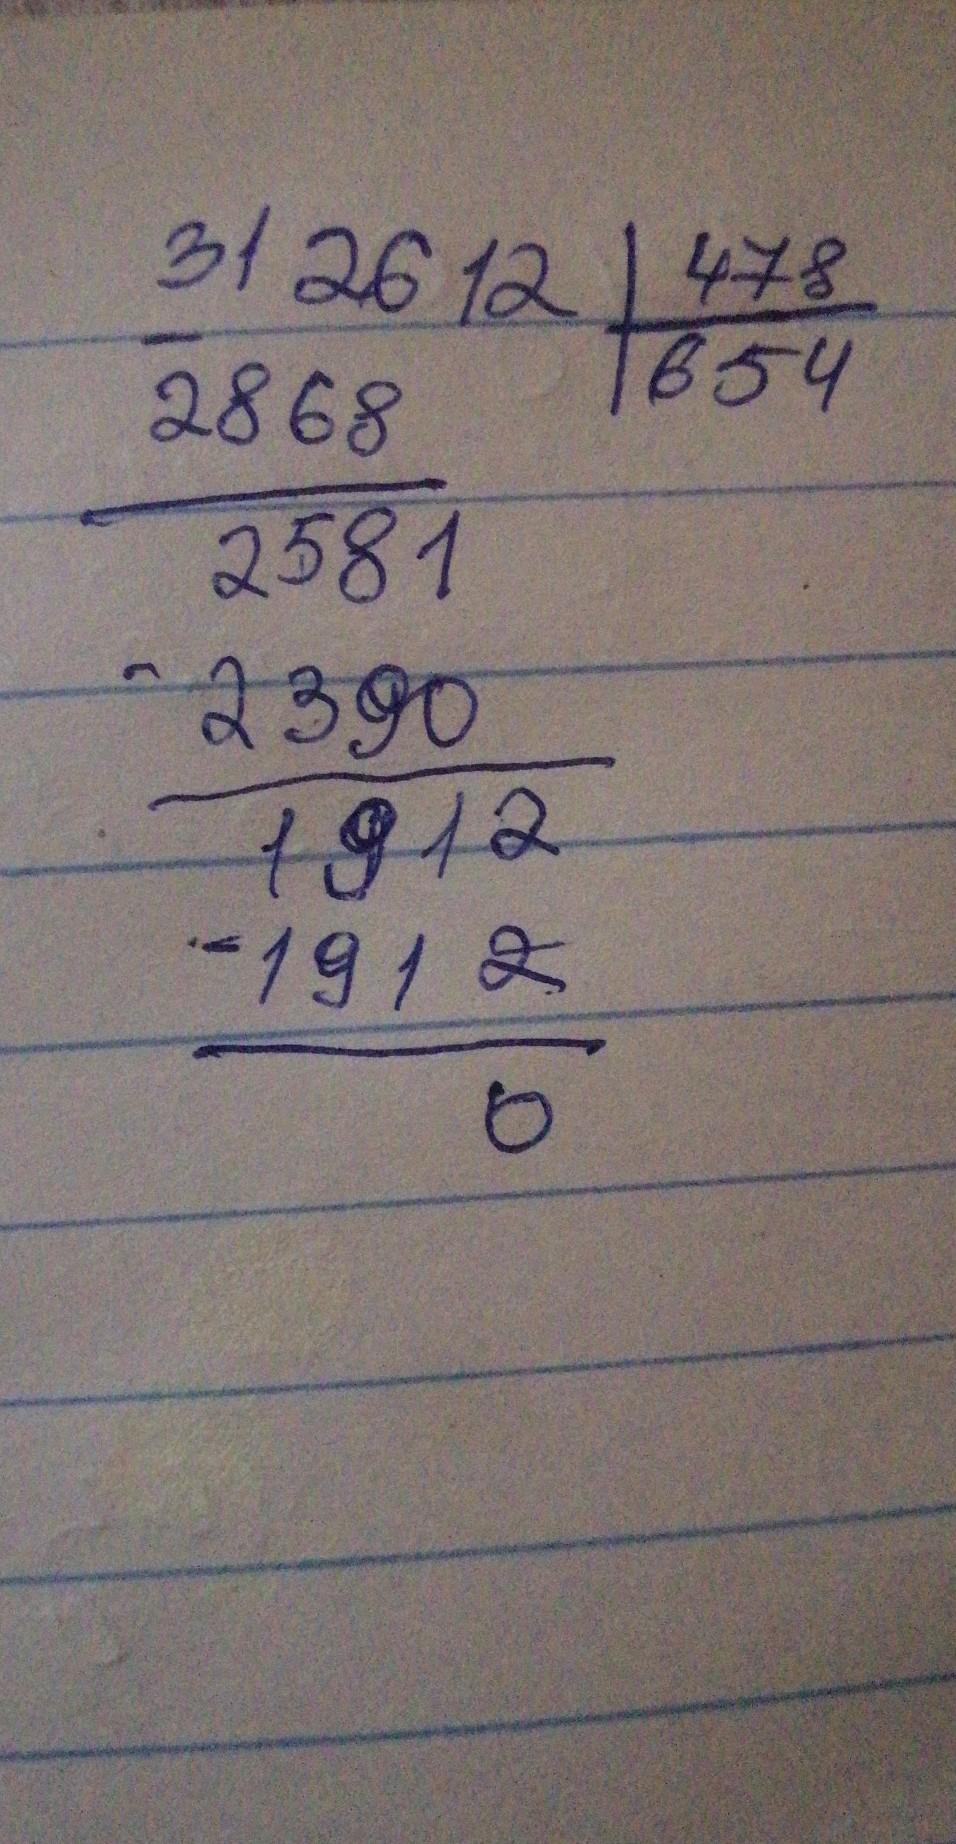 312612 | 478
- 2868 | 654
2581
- 2390
1912
- 1912
0